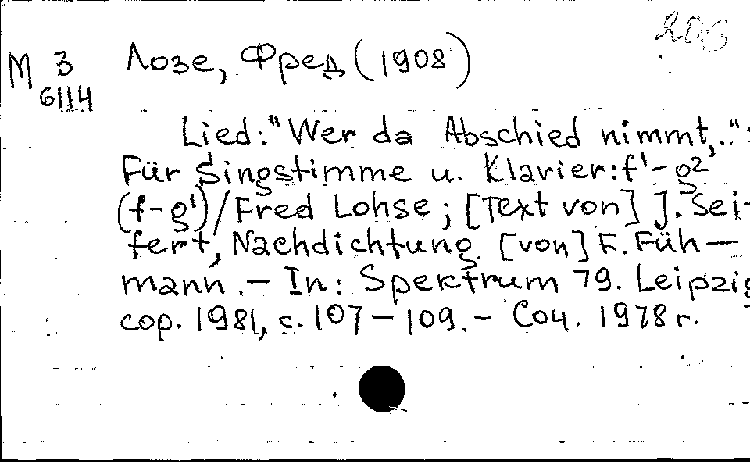 206
М 3 Лозе, Фред (1908)
6114
Lied: "Wer da Abschied nimmt,..":
Für Singstimme u. Klavier: f¹-g²
(f-g¹)/Fred Lohse; [Text von] J. Sei-
fert, Nachdichtung [von] F. Füh-
mann. - In: Spektrum 79. Leipzig
cop. 1981, с. 107-109. - Соч. 1978 г.